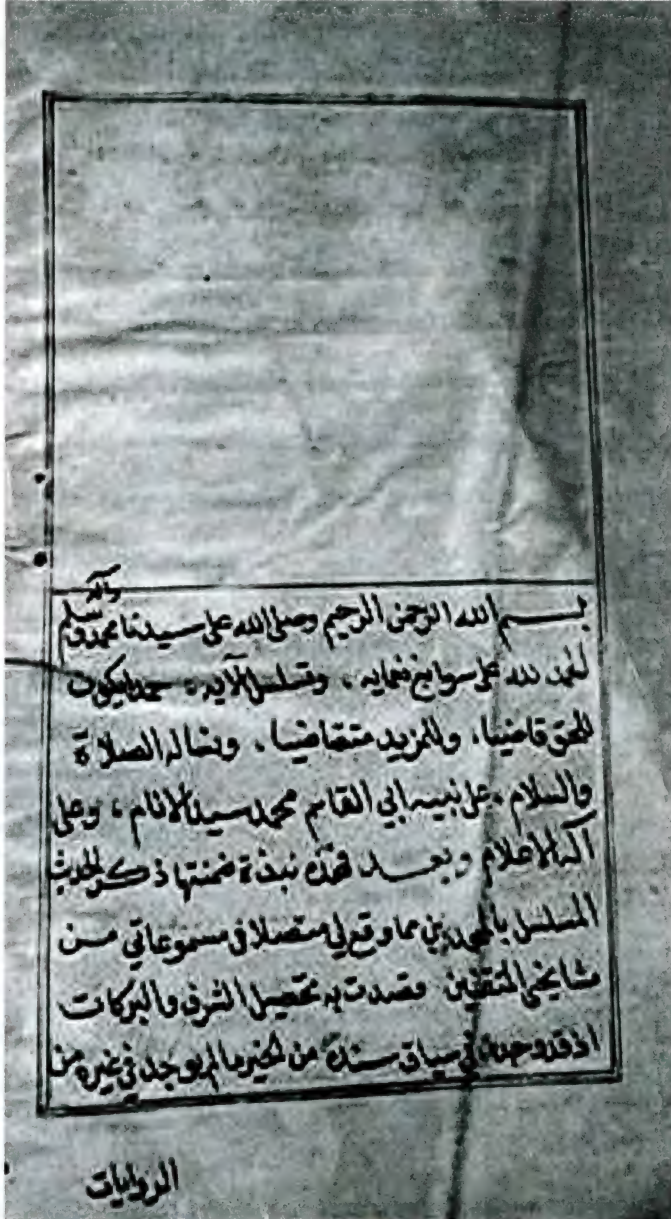 بسم الله الرحمن الرحيم وصلى الله على سيدنا محمد وآله وسلم
الحمد لله على سوابغ نعمايه، وتسلسل آلايه، حمدا يكون
للحق قاضيا، وللمزيد متقاضيا، ونساله الصلاة
والسلام، على نبيه ابي القاسم محمد سيد الانام، وعلى
آله الاعلام وبعد فهذه نبذة ضمنتها ذكر الحديث
المسلسل بالمحمدين مما وقع لي متصلا في مسموعاتي من
مشايخي المتقنين قصدت به تحصيل الشرف والبركات
اذ قد وجد في سياق سنده من الخير ما لم يوجد في غيره من
الروايات